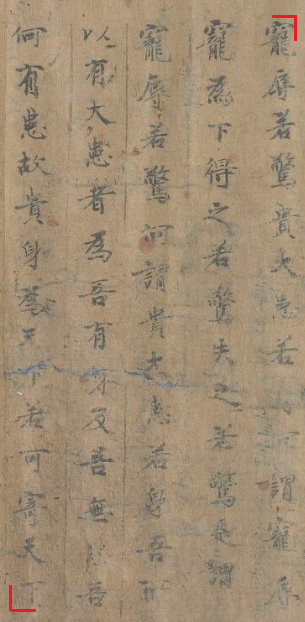 寵辱若驚貴大患若身何謂寵辱
寵為下得之若驚失之若驚是謂
寵辱若驚何謂貴大患若身吾所
以有大患者為吾有身及吾無身吾
何有患故貴身為天下若可寄天下